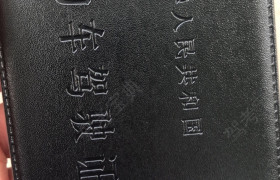 人民共和国
车驾驶证